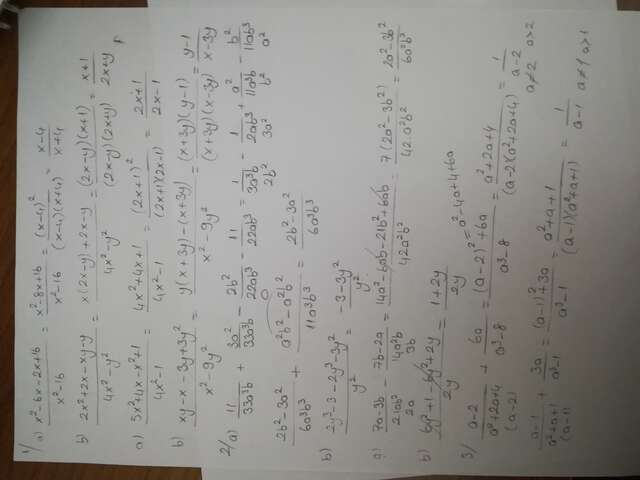 1/
a) x²-6x-2x+16/x²-16 = x²-8x+16/x²-16 = (x-4)²/(x-4)(x+4) = x-4/x+4
b) 2x²+2x-xy-y/4x²-y² = x(2x-y)+2x-y/4x²-y² = (2x-y)(x+1)/(2x-y)(2x+y) = x+1/2x+y
a) 5x²+4x-x²+1/4x²-1 = 4x²+4x+1/4x²-1 = (2x+1)²/(2x+1)(2x-1) = 2x+1/2x-1
b) xy-x-3y+3y²/x²-9y² = y(x+3y)-(x+3y)/x²-9y² = (x+3y)(y-1)/(x+3y)(x-3y) = y-1/x-3y
2/a) 11/33a³b + 3a²/33a³b - 2b²/22ab³ - 11/22ab³ = 1/3a³b - 1/2ab³ + a²/11a³b - b²/11ab³
2b² 3a² b² a²
2b²-3a²/6a³b³ + a²b²-a²b²/11a³b³ = 2b²-3a²/6a³b³
b) 2y³-3-2y³-3y²/y² = -3-3y²/y²
a) 7a-3b/21ab² - 7b-2a/14a²b = 14a²-6ab-21b²+6ab/42a²b² = 7(2a²-3b²)/42a²b² = 2a²-3b²/6a²b²
2a 3b
b) 6y²+1-6y²+2y/2y = 1+2y/2y
3/ a-2/a²+2a+4 + 6a/a³-8 = (a-2)²+6a/a³-8 = a²+2a+4/(a-2)(a²+2a+4) = 1/a-2
(a-2) = a²-4a+4+6a a≠2 a>2
a-1/a²+a+1 + 3a/a³-1 = (a-1)²+3a/a³-1 = a²+a+1/(a-1)(a²+a+1) = 1/a-1 a≠1 a>1
(a-1)